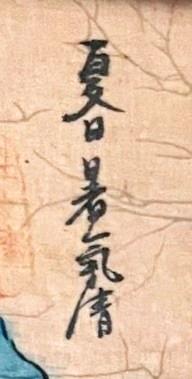 夏日暑氣清